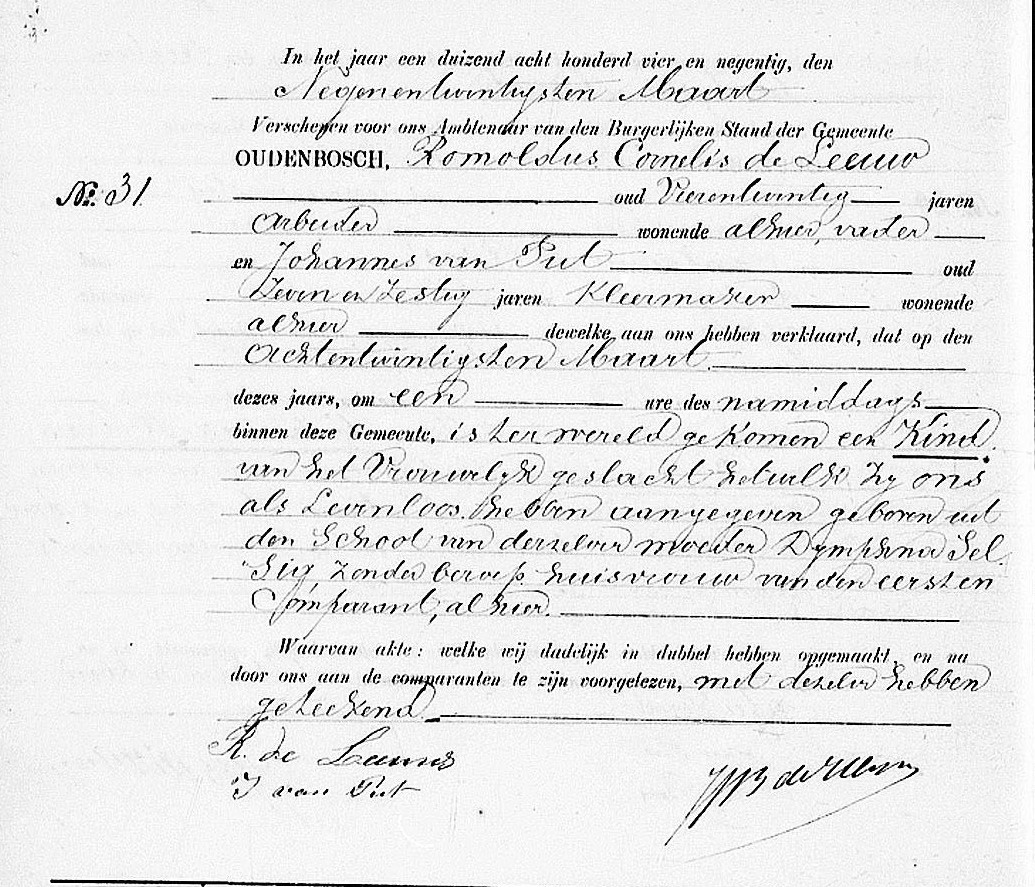 In het jaar een duizend acht honderd vier en negentig, den
Negenentwintigsten Maart
Verschenen voor ons Ambtenaar van den Burgerlijken Stand der Gemeente
OUDENBOSCH, Romoldus Cornelis de Leeuw
No. 31
oud Vierentwintig jaren
arbeider wonende alhier, vader
en Johannes van Put oud
Zeven en Zestig jaren Kleermaker wonende
alhier dewelke aan ons hebben verklaard, dat op den
Achtentwintigsten Maart
dezes jaars, om een ure des namiddags
binnen deze Gemeente, is ter wereld gekomen een Kind
van het Vrouwelijk geslacht hetwelk zy ons
als Levenloos hebben aangegeven geboren uit
den School van derzelver moeder Dymphna Sel
sig, zonder beroep, huisvrouw van den eersten
Comparant, alhier.
Waarvan akte: welke wij dadelijk in dubbel hebben opgemaakt, en na
door ons aan de comparanten te zijn voorgelezen, met dezelve hebben
geteekend
R. de Leeuw
J van Put